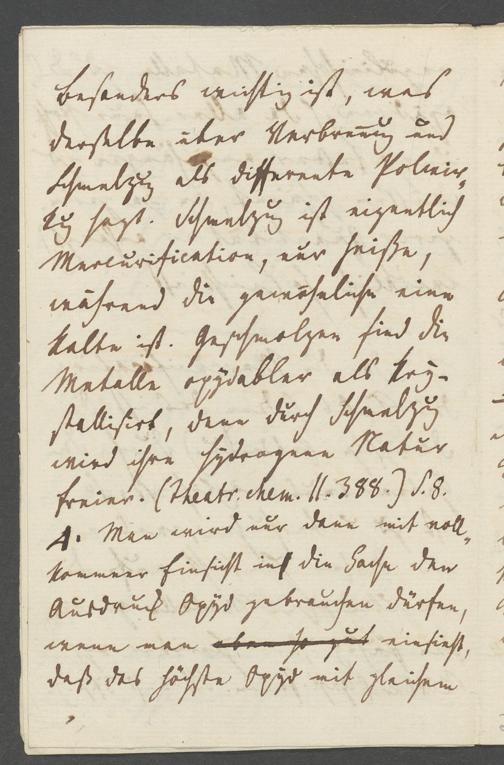 besonders wichtig ist, was
derselbe über Verbrennung und
Schmelzung als differente Polwir-
kung sagt. Schmelzung ist eigentlich
Mercurification, nur heiße,
während die gewöhnliche eine
kalte ist. Geschmolzen sind die
Metalle oxydabler als kry-
stallisirt, denn durch Schmelzung
wird ihre hydrogene Natur
freier. (Theatr. chem. II. 388.) S. 8.
4. Man wird nur dann mit voll-
kommner Einsicht in die Sache den
Ausdruck Oxyd gebrauchen dürfen,
wenn man eben so gut einsieht,
daß das höchste Oxyd mit gleichem